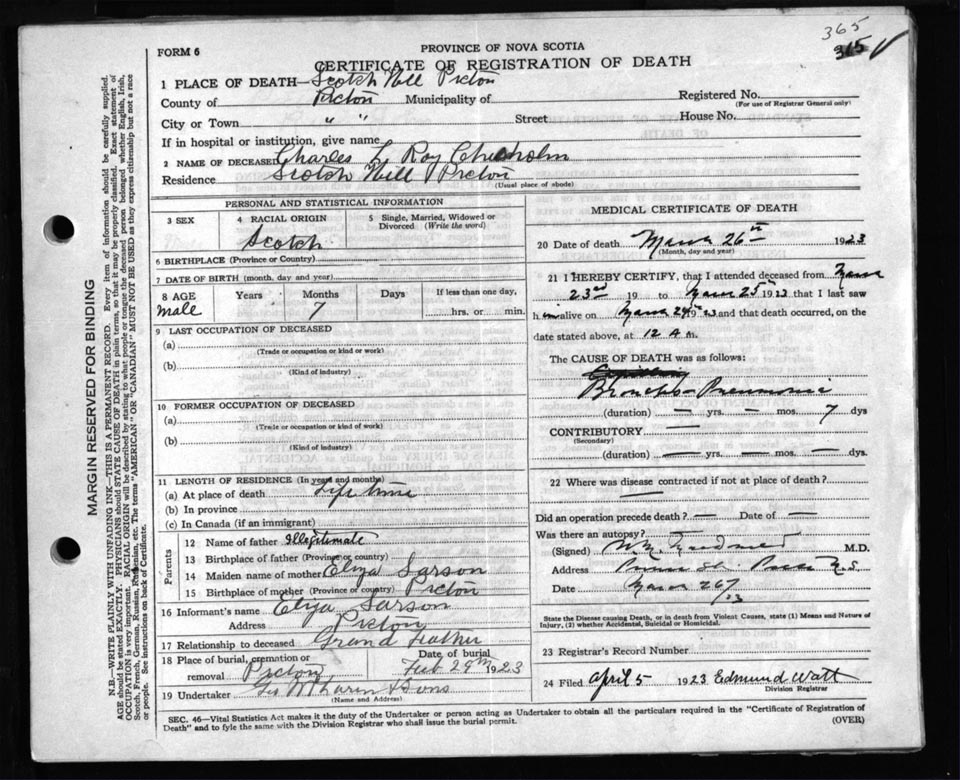 365
315
FORM 6
PROVINCE OF NOVA SCOTIA
CERTIFICATE OF REGISTRATION OF DEATH
1 PLACE OF DEATH—Scotch Hill Pictou
County of Pictou Municipality of
Registered No.
(For use of Registrar General only)
City or Town " " Street House No.
If in hospital or institution, give name
2 NAME OF DECEASED Charles L. Roy Chisholm
Residence Scotch Hill Pictou
(Usual place of abode)
PERSONAL AND STATISTICAL INFORMATION
3 SEX
4 RACIAL ORIGIN
Scotch
5 Single, Married, Widowed or Divorced (Write the word)
6 BIRTHPLACE (Province or Country)
7 DATE OF BIRTH (month, day and year)
8 AGE Years Months Days If less than one day,
male 7 hrs. or min.
9 LAST OCCUPATION OF DECEASED
(a)
(Trade or occupation or kind or work)
(b)
(Kind of industry)
10 FORMER OCCUPATION OF DECEASED
(a)
(Trade or occupation or kind of work)
(b)
(Kind of industry)
11 LENGTH OF RESIDENCE (In years and months)
(a) At place of death Life time
(b) In province
(c) In Canada (if an immigrant)
Parents
12 Name of father Illegitimate
13 Birthplace of father (Province or country)
14 Maiden name of mother Eliza Sarson
15 Birthplace of mother (Province or country) Pictou
16 Informant's name Eliza Sarson
Address Pictou
17 Relationship to deceased Grand Father
18 Place of burial, cremation or removal Pictou
Date of burial
Feb 29th 1923
19 Undertaker & Sons
(Name and Address)
MEDICAL CERTIFICATE OF DEATH
20 Date of death March 26th 1923
(Month, day and year)
21 I HEREBY CERTIFY, that I attended deceased from March
23rd 19 to March 25th 1923 that I last saw
him alive on March 24th 1923 and that death occurred, on the
date stated above, at 12 A m.
The CAUSE OF DEATH was as follows:
Broncho-Pneumonia
(duration) — yrs. — mos. 7 dys
CONTRIBUTORY —
(Secondary)
(duration) — yrs. — mos. — dys.
22 Where was disease contracted if not at place of death?
—
Did an operation precede death? — Date of —
Was there an autopsy? —
(Signed) M.D.
Address N.S.
Date March 26/23
State the Disease causing Death, or in death from Violent Causes, state (1) Means and Nature of
Injury, (2) whether Accidental, Suicidal or Homicidal.
23 Registrar's Record Number
24 Filed April 5 1923 Edmund Watt
Division Registrar
SEC. 46—Vital Statistics Act makes it the duty of the Undertaker or person acting as Undertaker to obtain all the particulars required in the "Certificate of Registration of
Death" and to fyle the same with the Division Registrar who shall issue the burial permit.
(OVER)
MARGIN RESERVED FOR BINDING
N.B.—WRITE PLAINLY WITH UNFADING INK—THIS IS A PERMANENT RECORD. Every item of information should be carefully supplied.
AGE should be stated EXACTLY. PHYSICIANS should STATE CAUSE OF DEATH in plain terms, so that it may be properly classified. Exact statement of
OCCUPATION is very important. RACIAL ORIGIN will be described by stating to what people or tongue the deceased person belonged whether English, Irish,
Scotch, French, German, Russian, Ruthenian, etc. The terms "AMERICAN" OR "CANADIAN" MUST NOT BE USED as they express citizenship but not a race
or people. See instructions on back of Certificate.